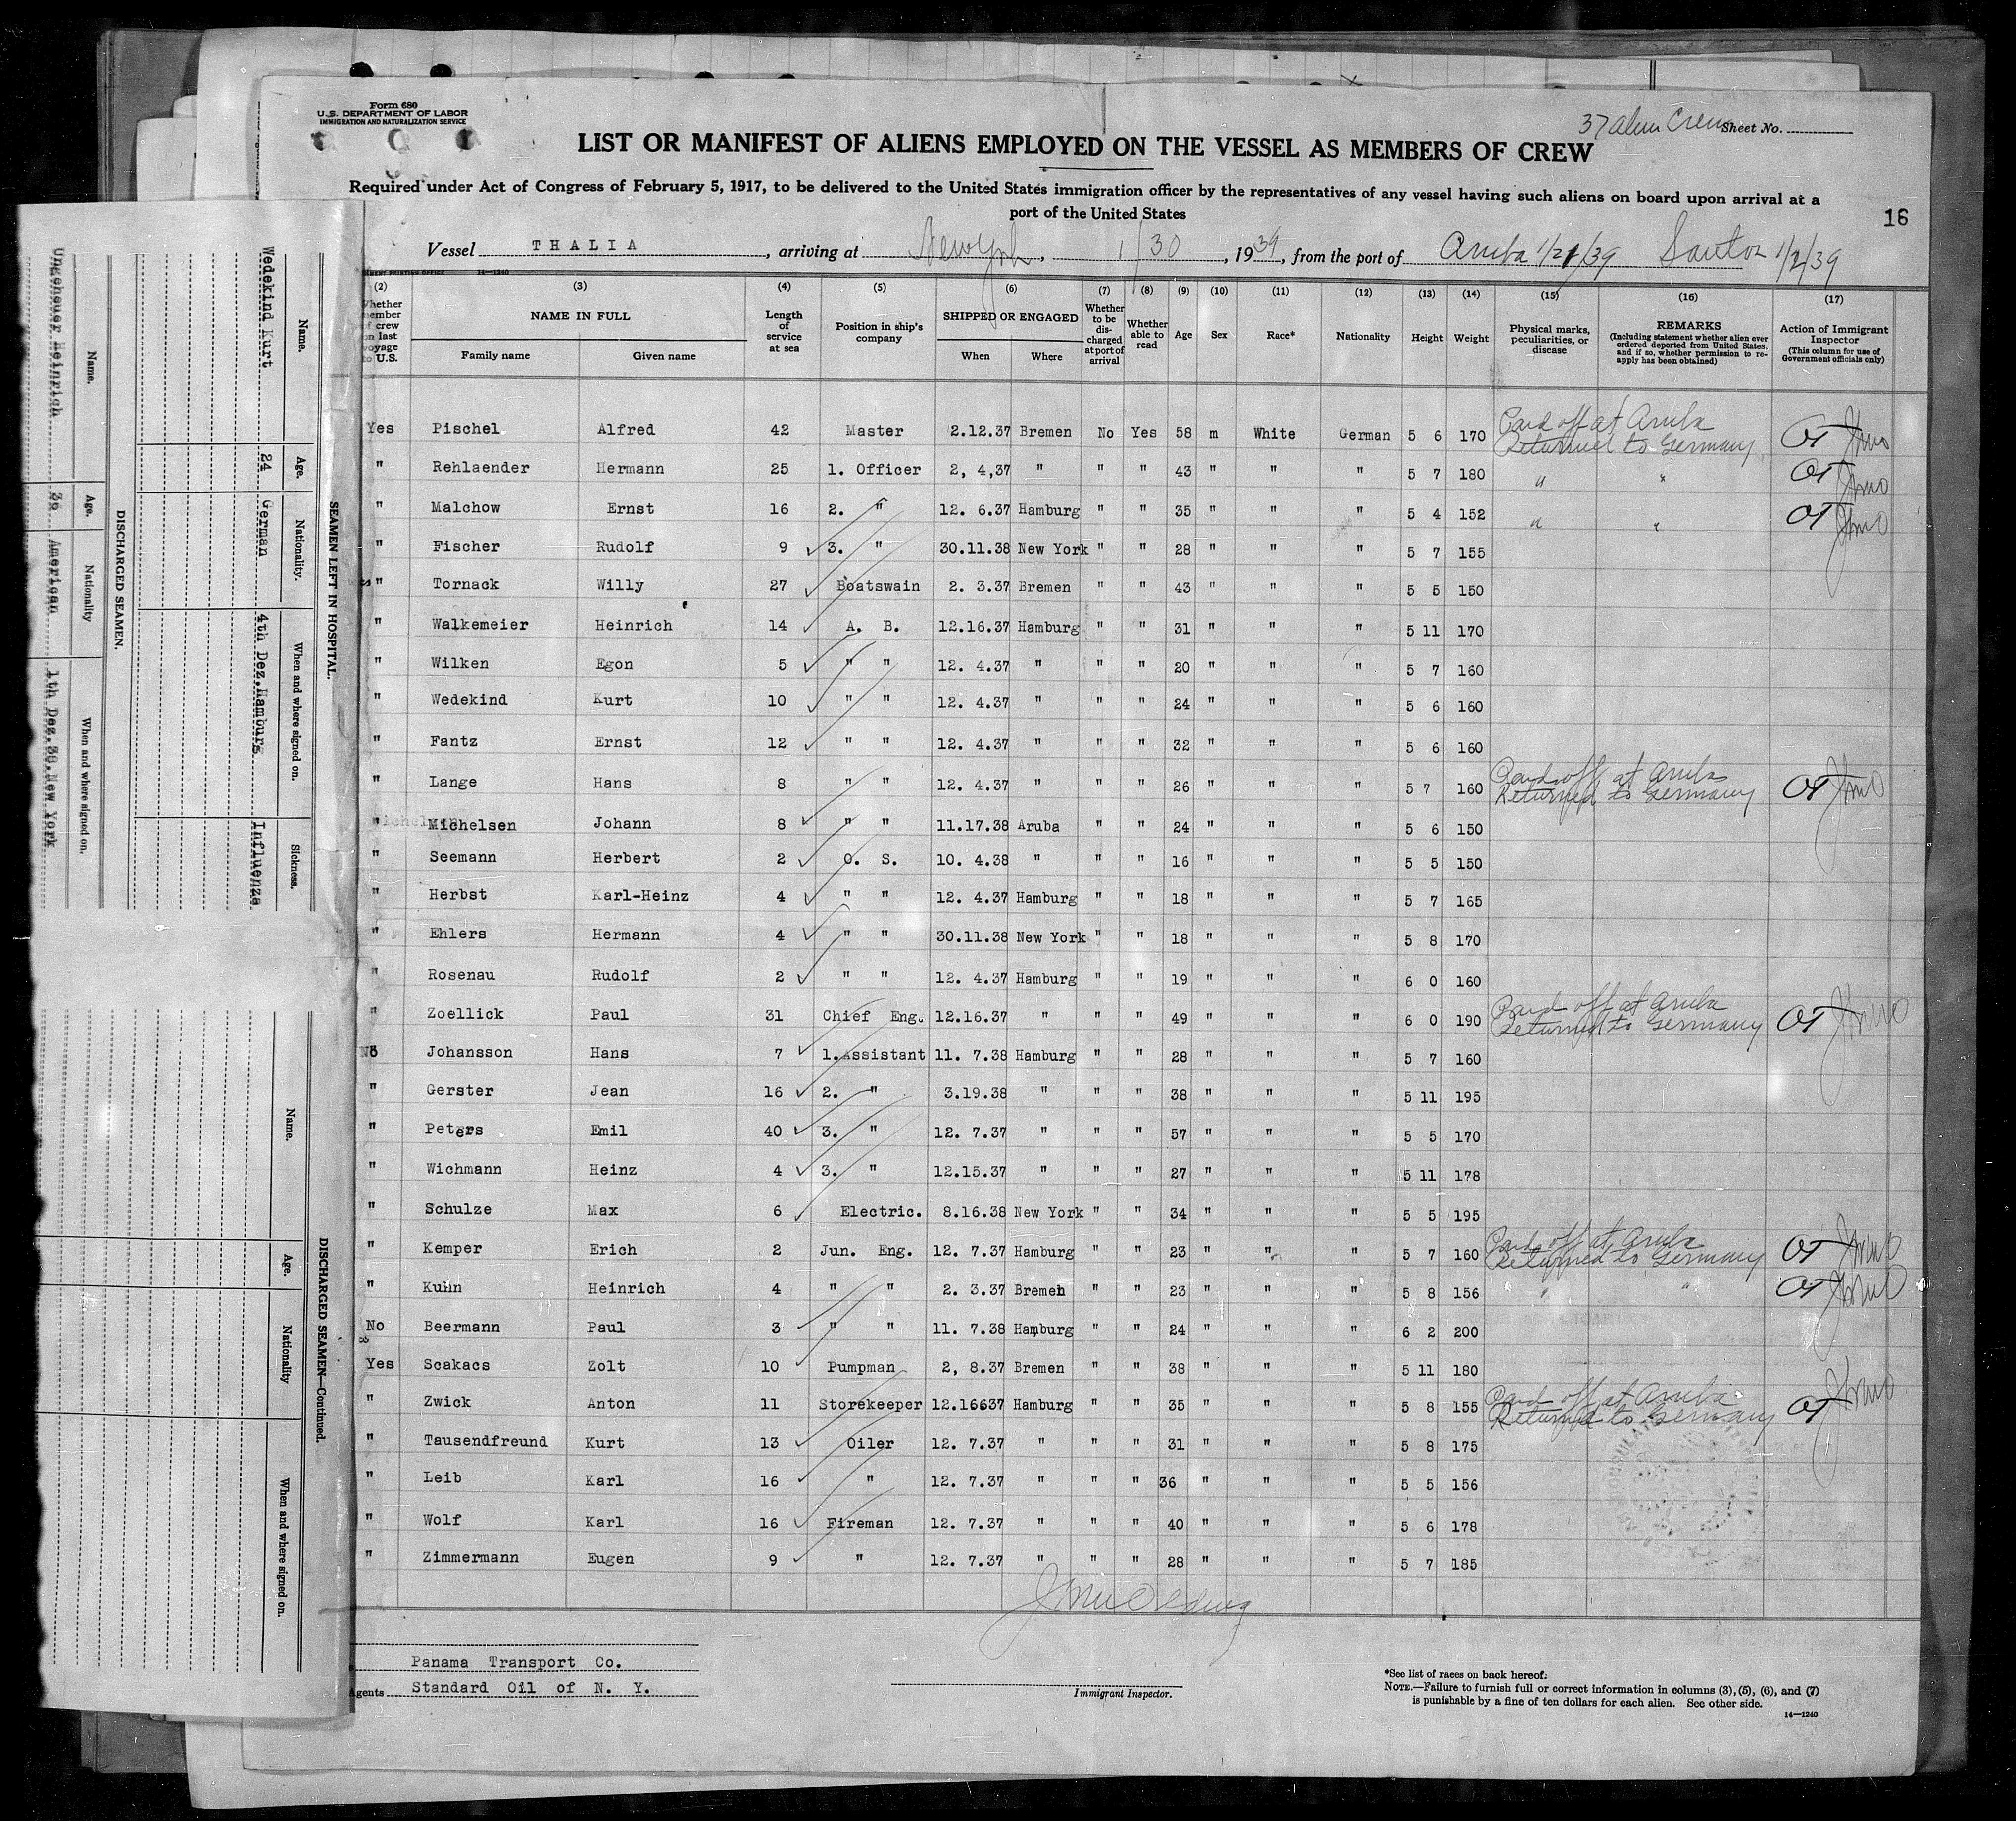 Form 680
U.S. DEPARTMENT OF LABOR
IMMIGRATION AND NATURALIZATION SERVICE
37 alien Crew Sheet No.
LIST OR MANIFEST OF ALIENS EMPLOYED ON THE VESSEL AS MEMBERS OF CREW
Required under Act of Congress of February 5, 1917, to be delivered to the United States immigration officer by the representatives of any vessel having such aliens on board upon arrival at a
port of the United States
16
Vessel THALIA, arriving at New York, 1/30, 1939, from the port of Aruba 1/21/39 Santos 1/2/39
14—1240
(2) (3) (4) (5) (6) (7) (8) (9) (10) (11) (12) (13) (14) (15) (16) (17)
Whether member of crew on last voyage to U.S. NAME IN FULL Length of service at sea Position in ship's company SHIPPED OR ENGAGED Whether to be discharged at port of arrival Whether able to read Age Sex Race* Nationality Height Weight Physical marks, peculiarities, or disease REMARKS (Including statement whether alien ever ordered deported from United States, and if so, whether permission to reapply has been obtained) Action of Immigrant Inspector (This column for use of Government officials only)
Family name Given name When Where
Yes Pischel Alfred 42 Master 2.12.37 Bremen No Yes 58 m White German 5 6 170 Paid off at Aruba Returned to Germany OT
" Rehlaender Hermann 25 1. Officer 2, 4,37 " " " 43 " " " 5 7 180 " " OT
" Malchow Ernst 16 2. " 12. 6.37 Hamburg " " 35 " " " 5 4 152 " " OT
" Fischer Rudolf 9 3. " 30.11.38 New York " " 28 " " " 5 7 155
" Tornack Willy 27 Boatswain 2. 3.37 Bremen " " 43 " " " 5 5 150
" Walkemeier Heinrich 14 A. B. 12.16.37 Hamburg " " 31 " " " 5 11 170
" Wilken Egon 5 " " 12. 4.37 " " " 20 " " " 5 7 160
" Wedekind Kurt 10 " " 12. 4.37 " " " 24 " " " 5 6 160
" Fantz Ernst 12 " " 12. 4.37 " " " 32 " " " 5 6 160
" Lange Hans 8 " " 12. 4.37 " " " 26 " " " 5 7 160 Paid off at Aruba Returned to Germany OT
" Michelsen Johann 8 " " 11.17.38 Aruba " " 24 " " " 5 6 150
" Seemann Herbert 2 O. S. 10. 4.38 " " " 16 " " " 5 5 150
" Herbst Karl-Heinz 4 " " 12. 4.37 Hamburg " " 18 " " " 5 7 165
" Ehlers Hermann 4 " " 30.11.38 New York " " 18 " " " 5 8 170
" Rosenau Rudolf 2 " " 12. 4.37 Hamburg " " 19 " " " 6 0 160
" Zoellick Paul 31 Chief Eng. 12.16.37 " " " 49 " " " 6 0 190 Paid off at Aruba Returned to Germany OT
No Johansson Hans 7 1.Assistant 11. 7.38 Hamburg " " 28 " " " 5 7 160
" Gerster Jean 16 2. " 3.19.38 " " " 38 " " " 5 11 195
" Peters Emil 40 3. " 12. 7.37 " " " 57 " " " 5 5 170
" Wichmann Heinz 4 3. " 12.15.37 " " " 27 " " " 5 11 178
" Schulze Max 6 Electric. 8.16.38 New York " " 34 " " " 5 5 195
" Kemper Erich 2 Jun. Eng. 12. 7.37 Hamburg " " 23 " " " 5 7 160 Paid off at Aruba Returned to Germany OT
" Kuhn Heinrich 4 " " 2. 3.37 Bremen " " 23 " " " 5 8 156 " " OT
No Beermann Paul 3 " " 11. 7.38 Hamburg " " 24 " " " 6 2 200
Yes Scakacs Zolt 10 Pumpman 2, 8.37 Bremen " " 38 " " " 5 11 180
" Zwick Anton 11 Storekeeper 12.16637 Hamburg " " 35 " " " 5 8 155 Paid off at Aruba Returned to Germany OT
" Tausendfreund Kurt 13 Oiler 12. 7.37 " " " 31 " " " 5 8 175
" Leib Karl 16 " 12. 7.37 " " " 36 " " " 5 5 156
" Wolf Karl 16 Fireman 12. 7.37 " " " 40 " " " 5 6 178
" Zimmermann Eugen 9 " 12. 7.37 " " " 28 " " " 5 7 185
Panama Transport Co.
Agents Standard Oil of N. Y.
Immigrant Inspector.
*See list of races on back hereof.
NOTE.—Failure to furnish full or correct information in columns (3), (5), (6), and (7)
is punishable by a fine of ten dollars for each alien. See other side.
14—1240
SEAMEN LEFT IN HOSPITAL.
Name. Age. Nationality. When and where signed on. Sickness.
Wedekind Kurt 24 German 4th Dez.Hamburg Influenza
DISCHARGED SEAMEN.
Name. Age. Nationality When and where signed on.
Ungeheuer Heinrich 36 American 1th Dez.38.New York
DISCHARGED SEAMEN—Continued.
Name. Age. Nationality When and where signed on.